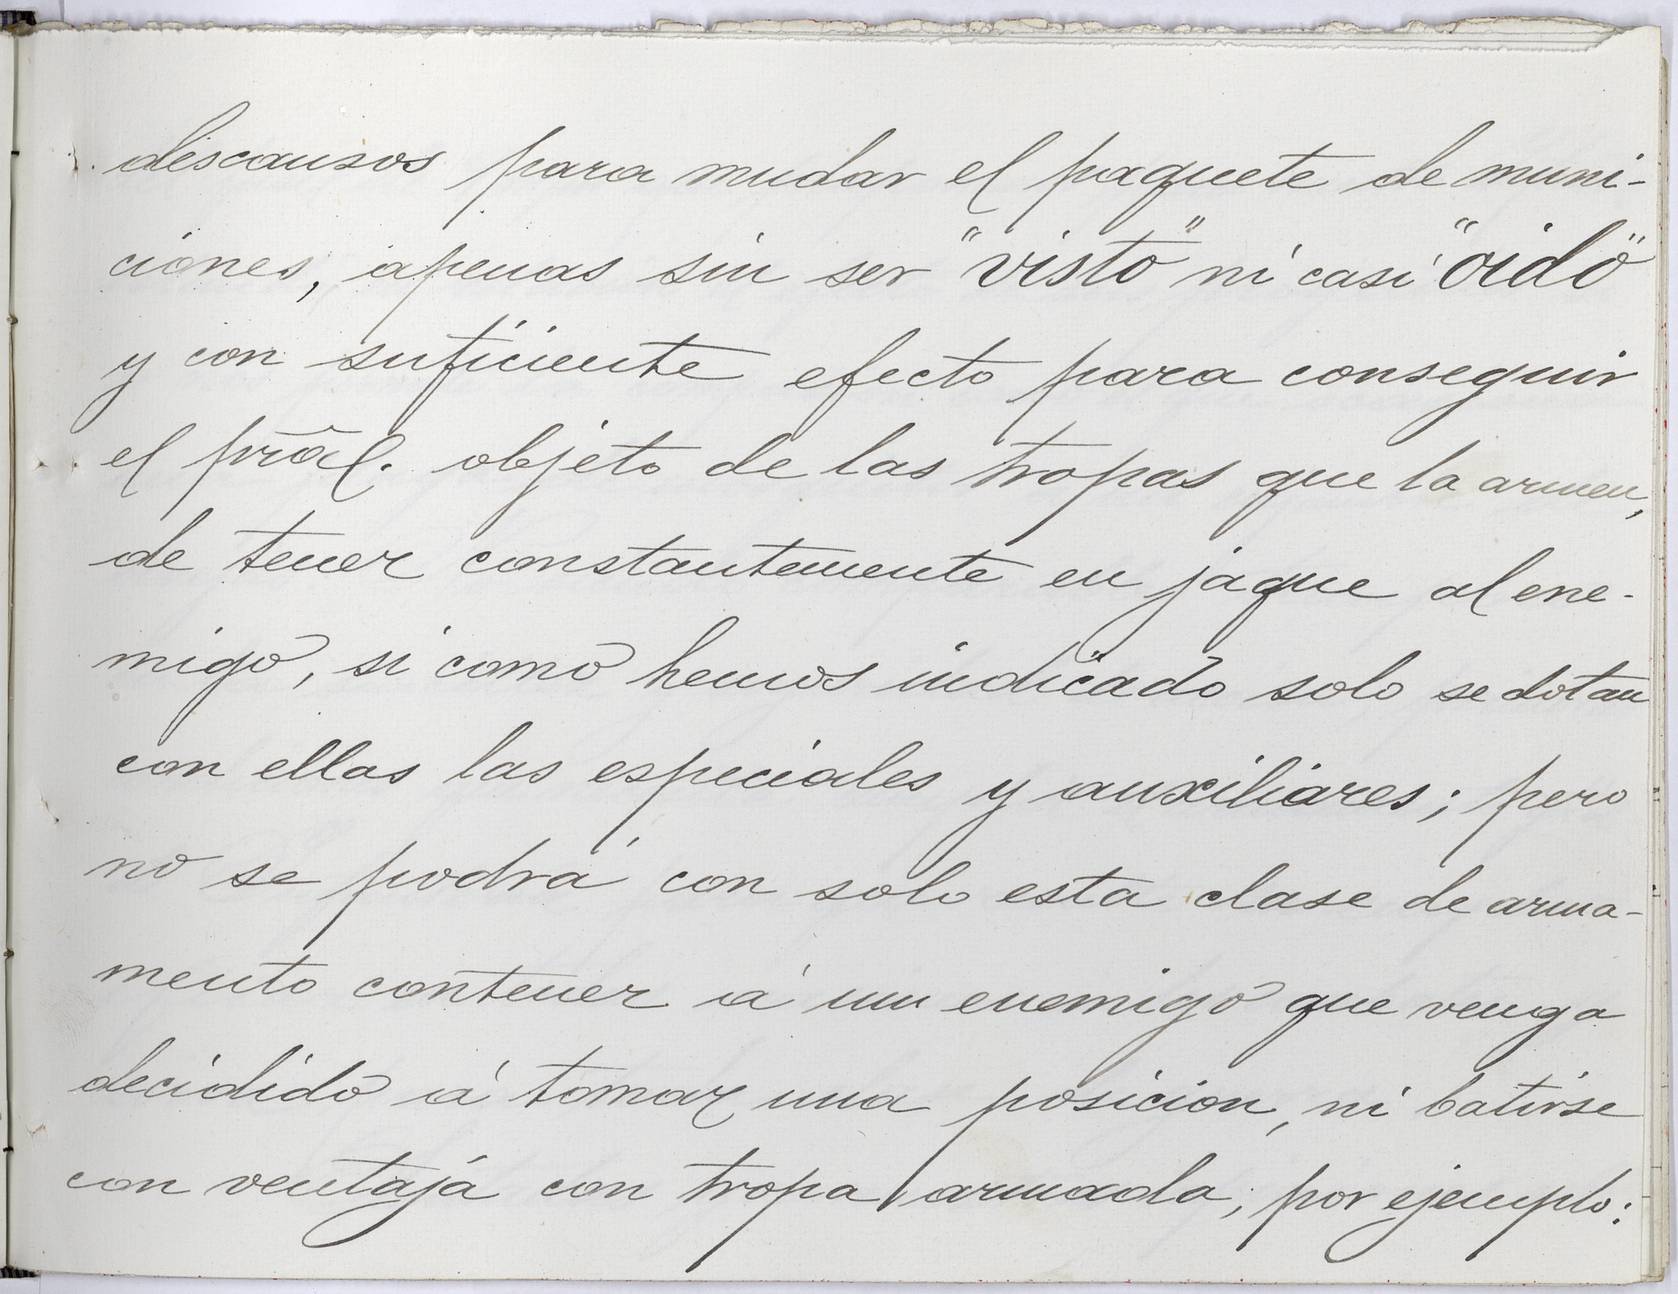 descansos para mudar el paquete de muni-
ciones, apenas sin ser "visto" ni casi "oido"
y con suficiente efecto para conseguir
el prãl. objeto de las tropas que la armen,
de tener constantemente en jaque al ene-
migo, si como hemos indicado solo se dotan
con ellas las especiales y auxiliares; pero
no se podrá con solo esta clase de arma-
mento contener á un enemigo que venga
decidido á tomar una posicion, ni batirse
con ventaja con tropa armada, por ejemplo: